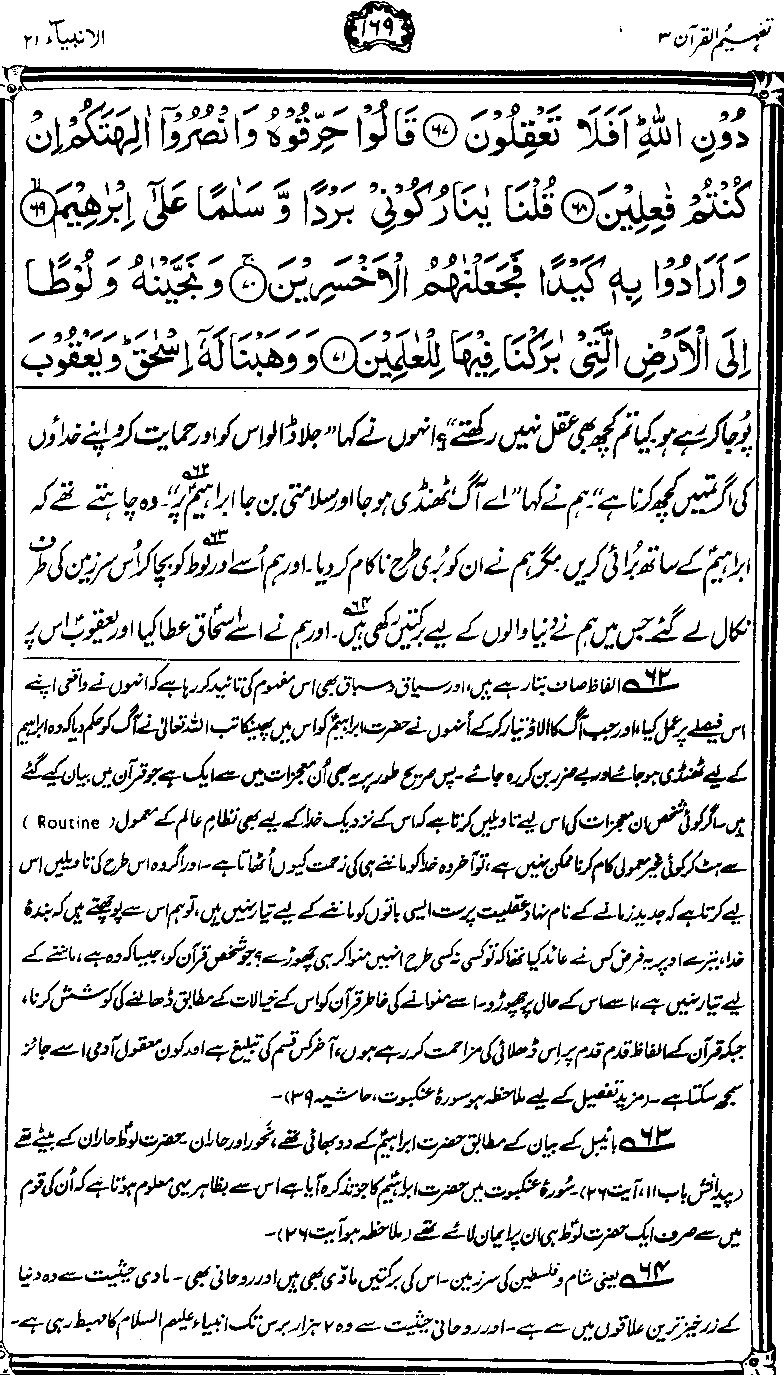 تفہیم القرآن ۳
۱۶۹
الانبیآء ۲۱
دُوْنِ اللّٰهِ اَفَلَا تَعْقِلُوْنَ ۶۷ قَالُوْا حَرِّقُوْهُ وَانْصُرُوْٓا اٰلِهَتَكُمْ اِنْ
كُنْتُمْ فٰعِلِيْنَ ۶۸ قُلْنَا يٰنَارُ كُوْنِيْ بَرْدًا وَّ سَلٰمًا عَلٰٓى اِبْرٰهِيْمَ ۶۹
وَ اَرَادُوْا بِهٖ كَيْدًا فَجَعَلْنٰهُمُ الْاَخْسَرِيْنَ ۷۰ وَ نَجَّيْنٰهُ وَ لُوْطًا
اِلَى الْاَرْضِ الَّتِيْ بٰرَكْنَا فِيْهَا لِلْعٰلَمِيْنَ ۷۱ وَ وَهَبْنَا لَهٗٓ اِسْحٰقَ وَ يَعْقُوْبَ
پوجا کر رہے ہو۔ کیا تم کچھ بھی عقل نہیں رکھتے“؟ انہوں نے کہا ”جلا ڈالو اس کو اور حمایت کرو اپنے خداؤں
کی اگر تمہیں کچھ کرنا ہے“۔ ہم نے کہا ”اے آگ ٹھنڈی ہو جا اور سلامتی بن جا ابراہیمؑ پر“۶۲۔ وہ چاہتے تھے کہ
ابراہیمؑ کے ساتھ بُرائی کریں مگر ہم نے ان کو بُری طرح ناکام کر دیا۔ اور ہم اُسے اور لوطؑ۶۳ کو بچا کر اُس سرزمین کی طرف
نکال لے گئے جس میں ہم نے دنیا والوں کے لیے برکتیں رکھی ہیں۶۴۔ اور ہم نے اسے اسحاق عطا کیا اور یعقوبؑ اس پر
۶۲ الفاظ صاف بتا رہے ہیں، اور سیاق و سباق بھی اس مفہوم کی تائید کر رہا ہے کہ انہوں نے واقعی اپنے
اس فیصلے پر عمل کیا، اور جب آگ کا الاؤ تیار کر کے اُنہوں نے حضرت ابراہیمؑ کو اس میں پھینکا تب اللہ تعالیٰ نے آگ کو حکم دیا کہ وہ ابراہیمؑ
کے لیے ٹھنڈی ہو جائے اور بے ضرر بن کر رہ جائے۔ پس صریح طور پر یہ بھی اُن معجزات میں سے ایک ہے جو قرآن میں بیان کیے گئے
ہیں۔ اگر کوئی شخص ان معجزات کی اس لیے تاویلیں کرتا ہے کہ اس کے نزدیک خدا کے لیے بھی نظامِ عالم کے معمول (Routine)
سے ہٹ کر کوئی غیر معمولی کام کرنا ممکن نہیں ہے، تو آخر وہ خدا کو ماننے ہی کی زحمت کیوں اُٹھاتا ہے۔ اور اگر وہ اس طرح کی تاویلیں اس
لیے کرتا ہے کہ جدید زمانے کے نام نہاد عقلیت پرست ایسی باتوں کو ماننے کے لیے تیار نہیں ہیں، تو ہم اس سے پوچھتے ہیں کہ بندۂ
خدا، تیرے اوپر یہ فرض کس نے عائد کیا تھا کہ تو کسی نہ کسی طرح انہیں منوا کر ہی چھوڑے؟ جو شخص قرآن کو، جیسا کہ وہ ہے، ماننے کے
لیے تیار نہیں ہے، اسے اس کے حال پر چھوڑو۔ اسے منوانے کی خاطر قرآن کو اس کے خیالات کے مطابق ڈھالنے کی کوشش کرنا،
جبکہ قرآن کے الفاظ قدم قدم پر اس ڈھلائی کی مزاحمت کر رہے ہوں، آخر کس قسم کی تبلیغ ہے اور کون معقول آدمی اسے جائز
سمجھ سکتا ہے۔ (مزید تفصیل کے لیے ملاحظہ ہو سورۂ عنکبوت، حاشیہ ۳۹)۔
۶۳ بائیبل کے بیان کے مطابق حضرت ابراہیمؑ کے دو بھائی تھے، نحور اور حاران۔ حضرت لوطؑ حاران کے بیٹے تھے
(پیدائش باب ۱۱، آیت ۲۶)۔ سورۂ عنکبوت میں حضرت ابراہیمؑ کا جو تذکرہ آیا ہے اس سے بظاہر یہی معلوم ہوتا ہے کہ اُن کی قوم
میں سے صرف ایک حضرت لوطؑ ہی ان پر ایمان لائے تھے (ملاحظہ ہو آیت ۲۶)۔
۶۴ یعنی شام و فلسطین کی سرزمین۔ اس کی برکتیں مادّی بھی ہیں اور روحانی بھی۔ مادی حیثیت سے وہ دنیا
کے زرخیز ترین علاقوں میں سے ہے۔ اور روحانی حیثیت سے وہ ۲ ہزار برس تک انبیاء علیہم السلام کا مہبط رہی ہے۔